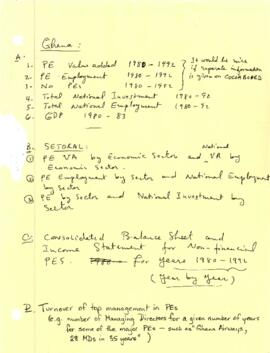 Ghana:
A.
1. PE Value added 1980 - 1992
2. PE Employment 1980 - 1992
3. No PEs 1980 - 1992
It would be nice
if separate information
is given on COCOABOARD
4. Total National Investment 1980 - 92
5. Total National Employment 1980 - 92
6. GDP 1980 - 83
B. SETORAL:
① PE VA by Economic Sector and National VA by
Economic Sector.
② PE Employment by Sector and National Employment
by Sector
③ PE by Sector and National Investment by
Sector
C. Consolidated Balance Sheet and
Income Statement for Non-financial
PES. for Years 1980 - 1992
(Year by Year)
D. Turnover of top management in PEs
(e.g. number of Managing Directors for a given number of years
for some of the major PEs - such as "Ghana Airways,
28 MDs in 35 years")